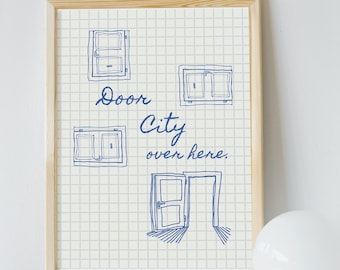 Door
City
over here.